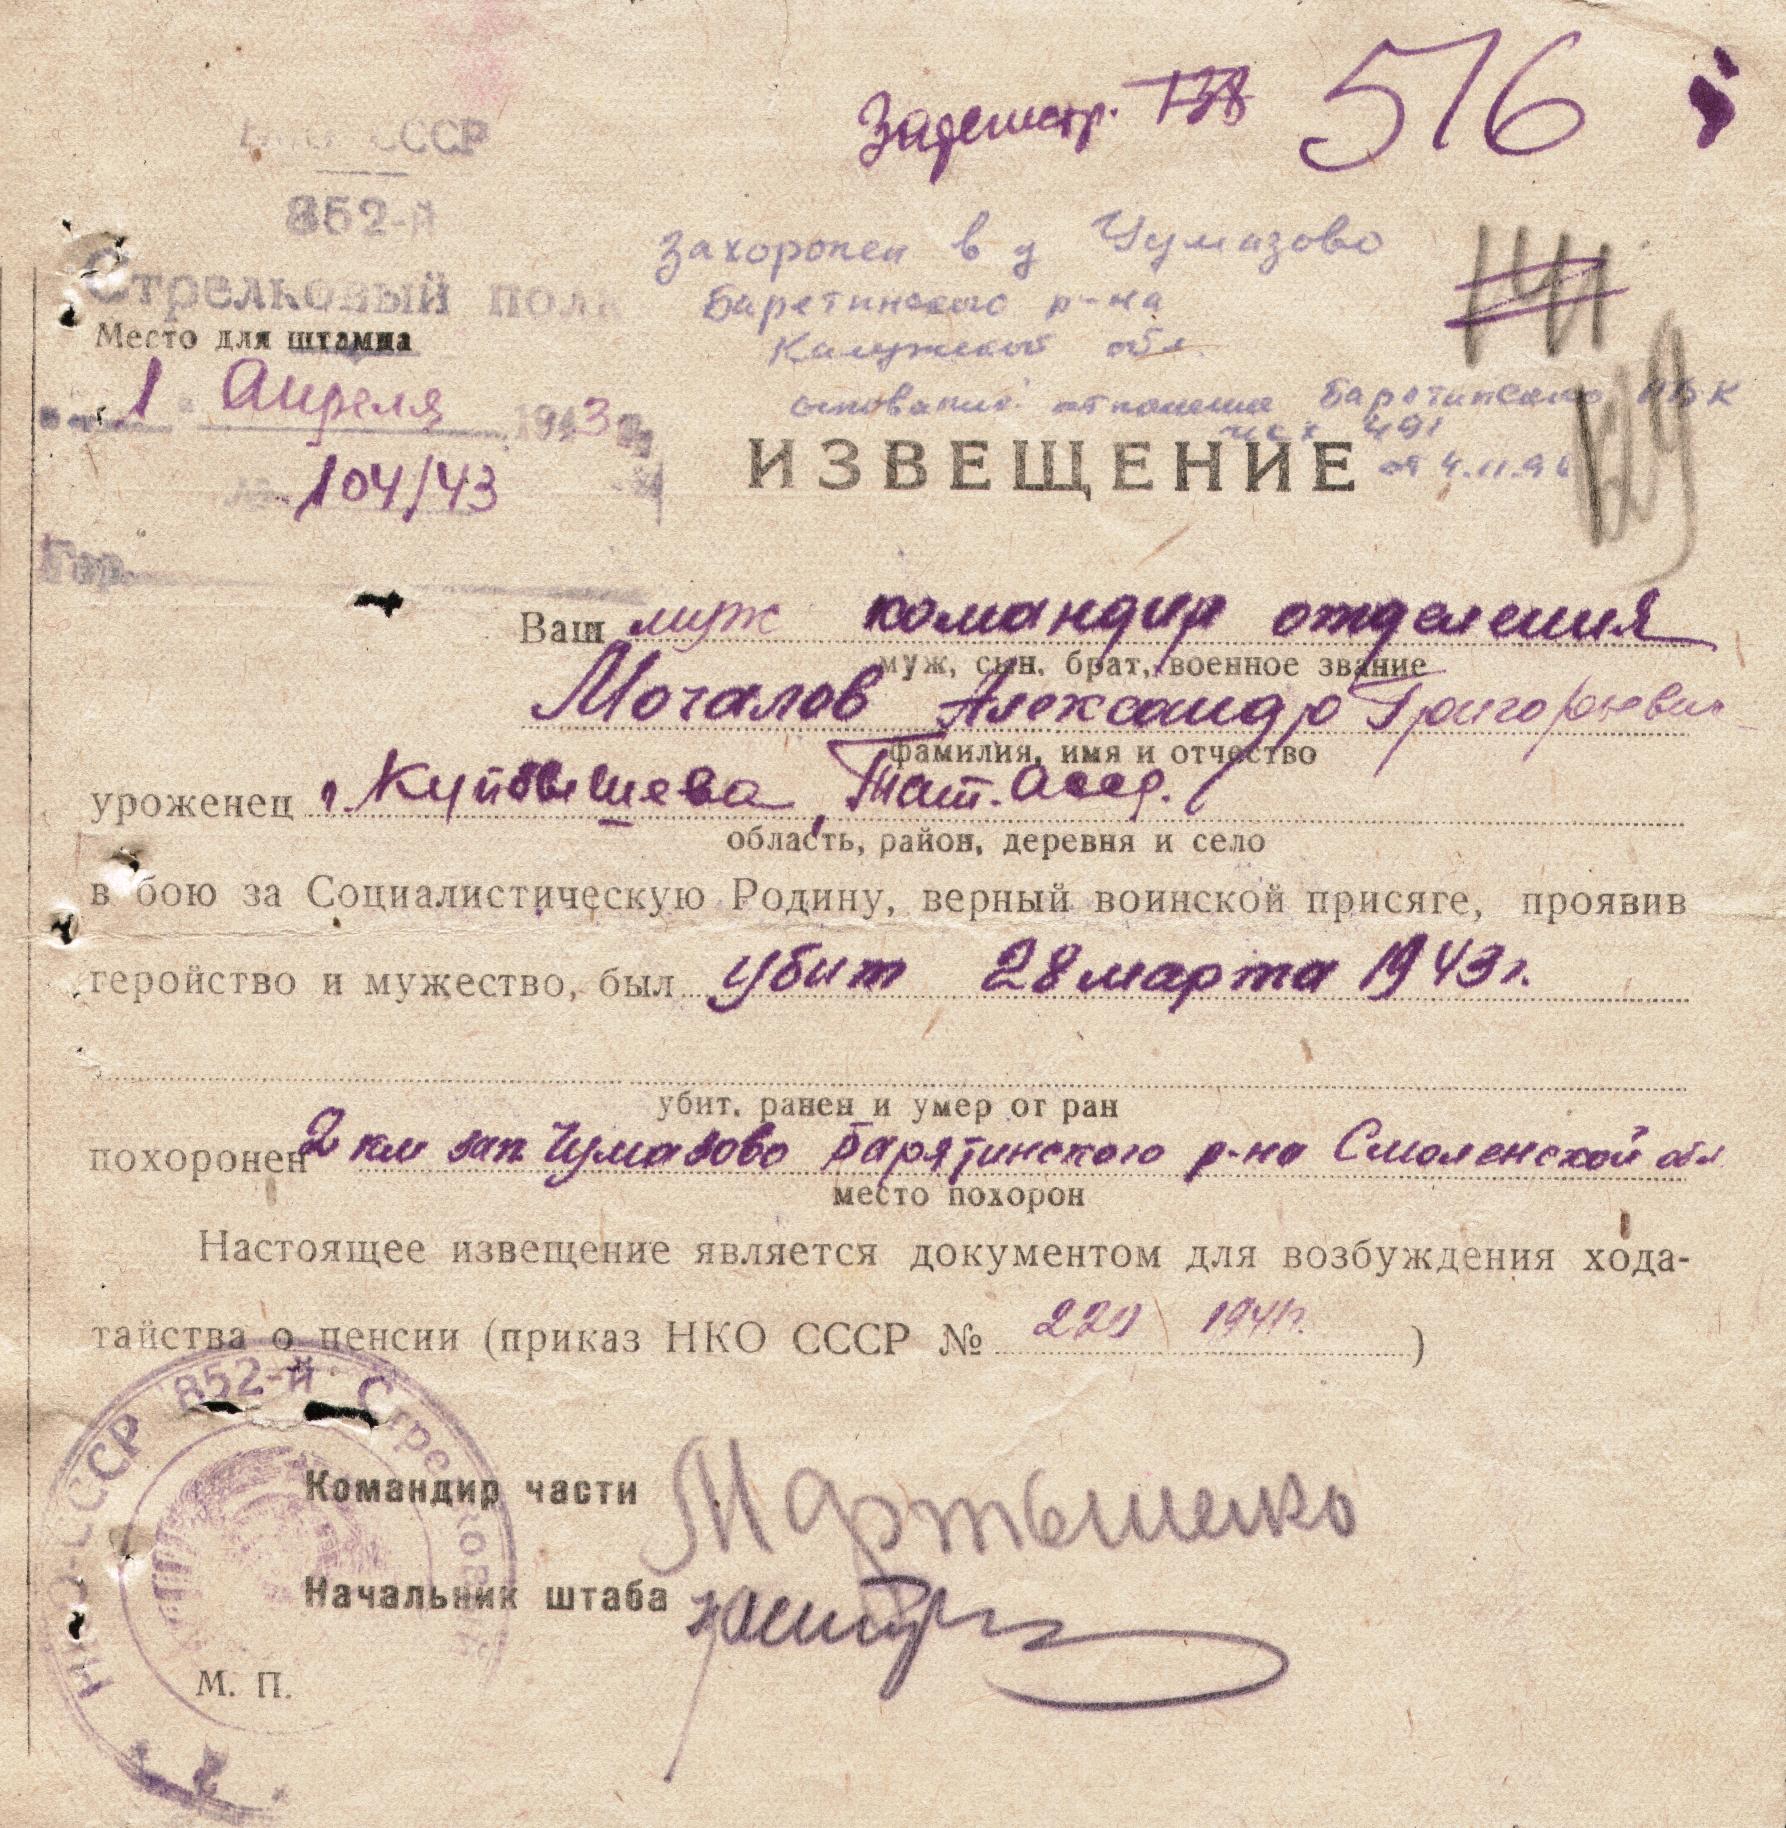 Зарегистр. 138 516
НКО СССР
852-й
Стрелковый полк
Захоронен в д Чумазово
Баретинского р-на
Калужской обл.
основание: отношение Баретинского РВК
исх 491
от 4.11.9
141
129
Место для штампа
1 Апреля 1943 г.
№ 104/43
Гор.
ИЗВЕЩЕНИЕ
Ваш муж командир отделения
муж, сын, брат, военное звание
Мочалов Александр Григорьевич
фамилия, имя и отчество
уроженец г. Куйбышева, Тат. Асср.
область, район, деревня и село
в бою за Социалистическую Родину, верный воинской присяге, проявив
геройство и мужество, был убит 28 марта 1943 г.
убит, ранен и умер от ран
похоронен 2 км зап. Чумазово Барятинского р-на Смоленской обл
место похорон
Настоящее извещение является документом для возбуждения хода-
тайства о пенсии (приказ НКО СССР № 220 1941г. )
НКО-СССР 852-й Стрелковый
Командир части Мартыненко
Начальник штаба
М. П.